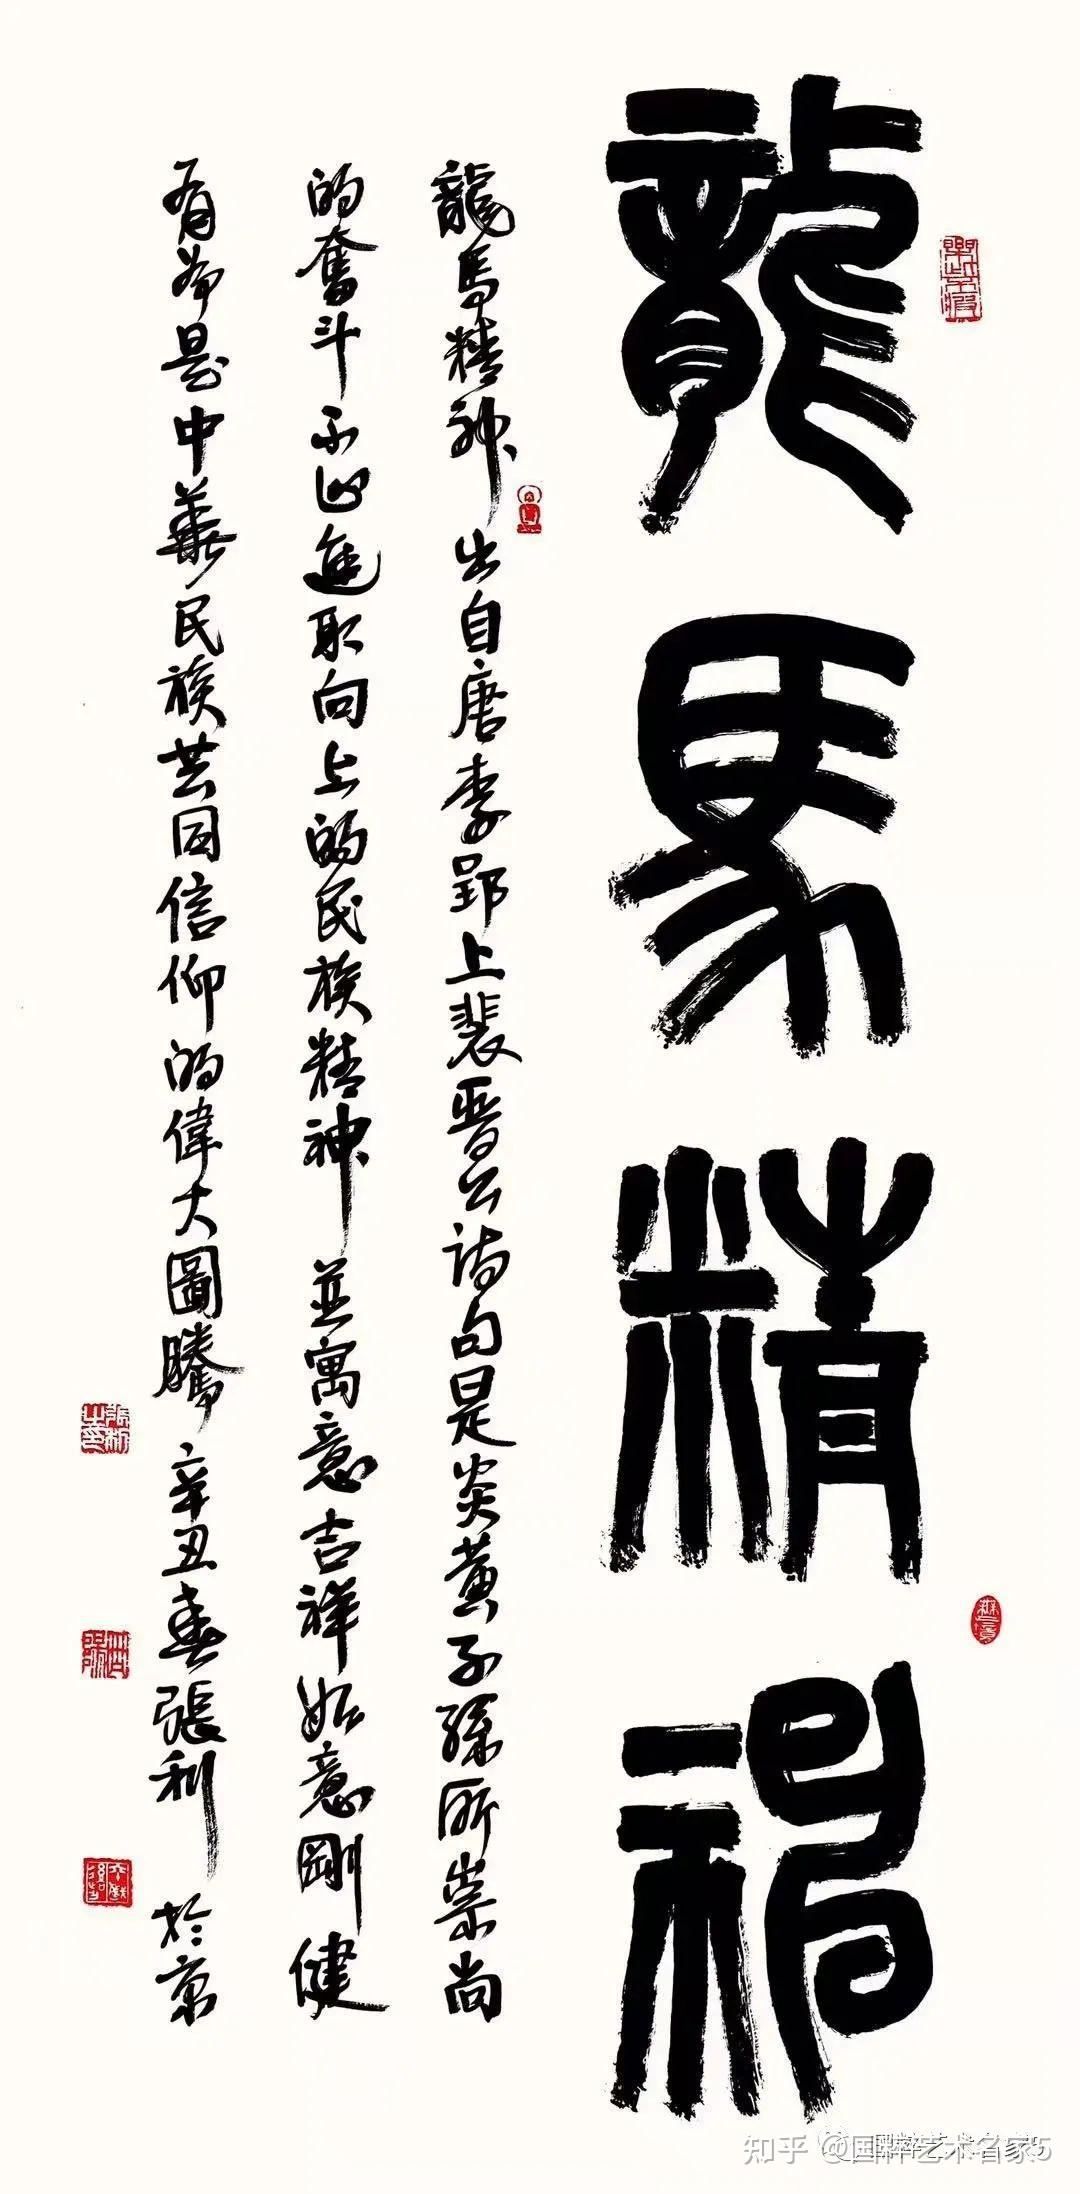 龍馬精神
龍馬精神出自唐李郢上裴晋公詩句是炎黄子孫所崇尚
的奮斗不止進取向上的民族精神並寓意吉祥如意剛健
有為是中華民族共同信仰的偉大圖騰辛丑春張利於京
知乎 @国粹艺术名家5